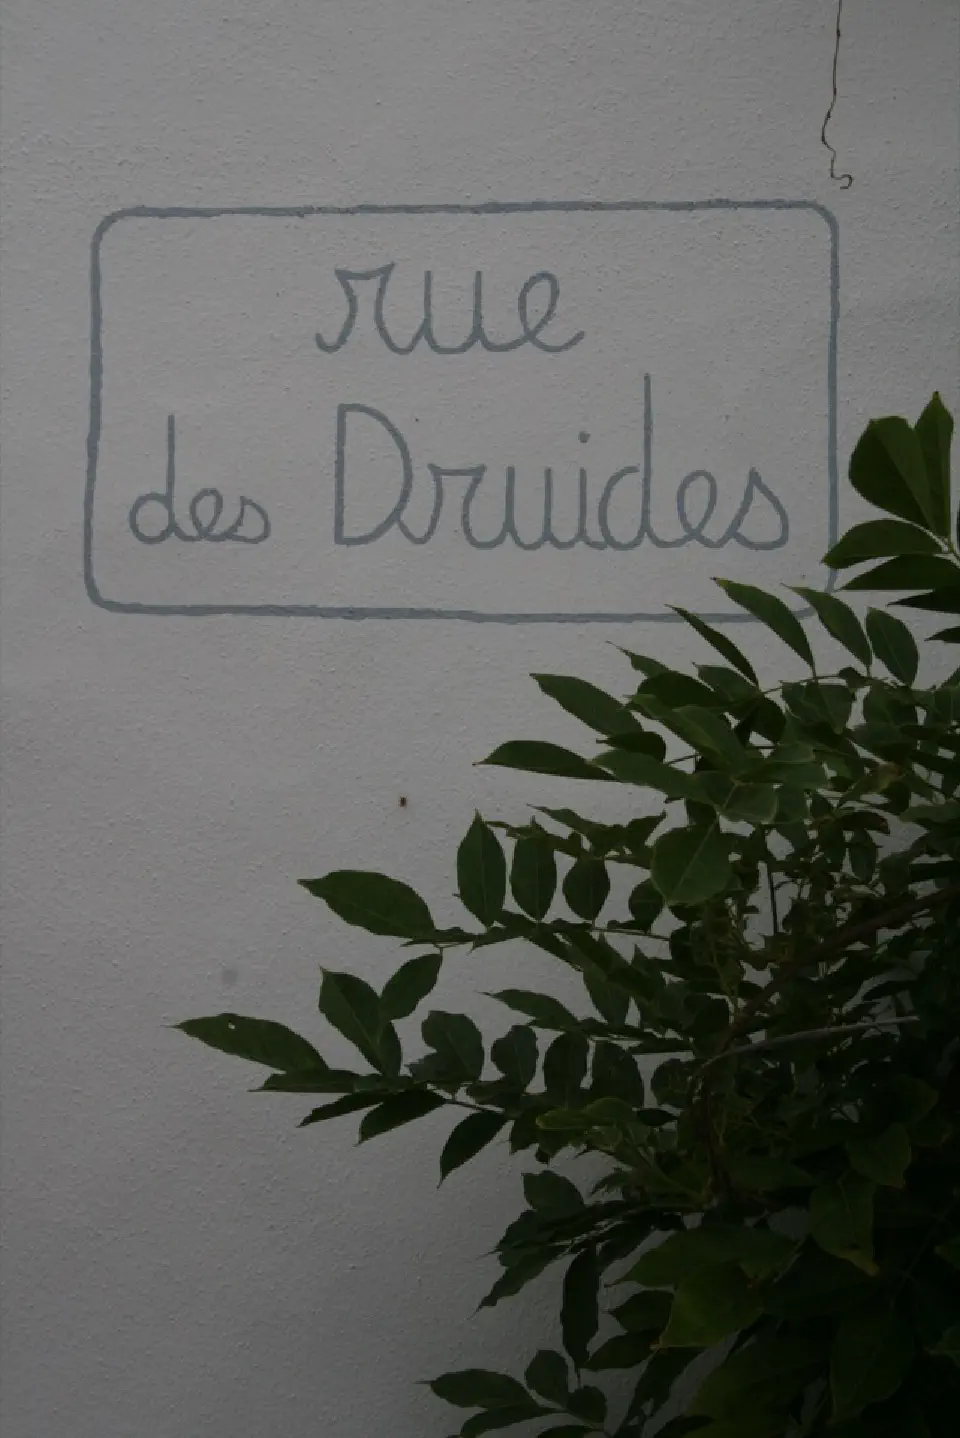 rue
des Druides